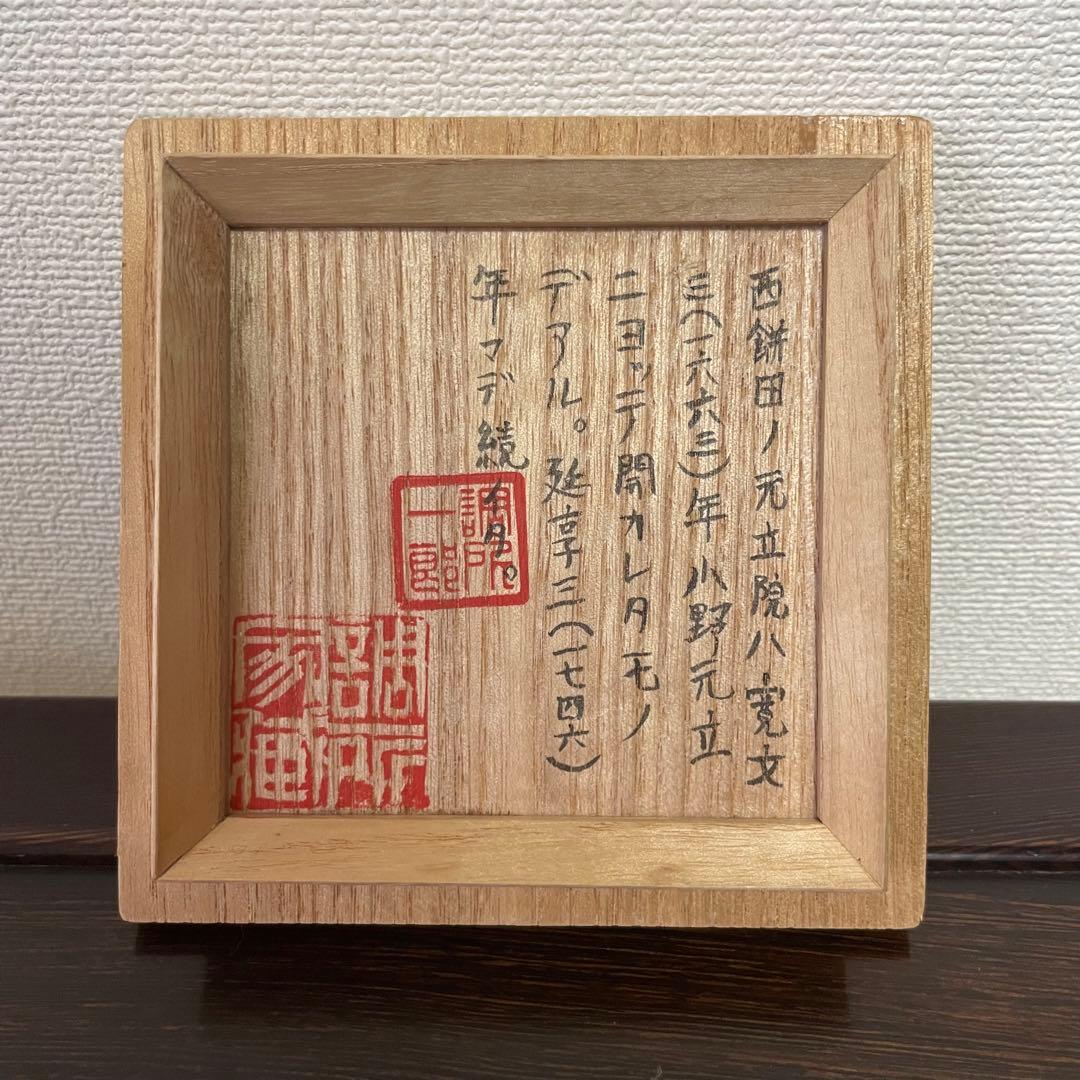 西餅田ノ元立院ハ寛文
三(一六六三)年小野元立
ニヨッテ開カレタモノ
デアル。延享三(一七四六)
年マデ続イタ。
調所
一郎
調所